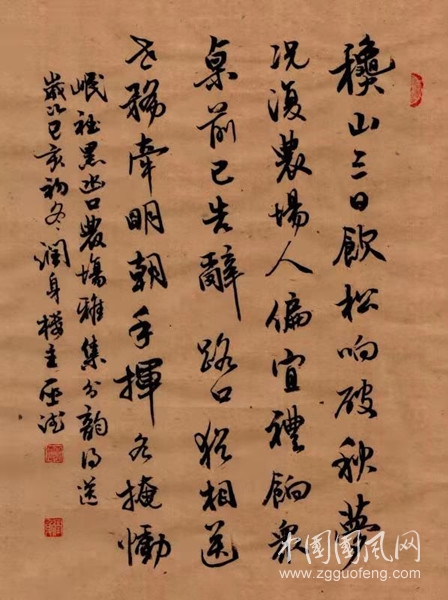 山三日飲松响破秋夢
况復農場人偏宜禮餉衆
桌前已告辭路口猶相送
世務牽明朝手揮各掩慟
岷社黑凼口農場雅集分韵得送
歲次己亥初冬潤身樓主
中国国风网
www.zgguofeng.com